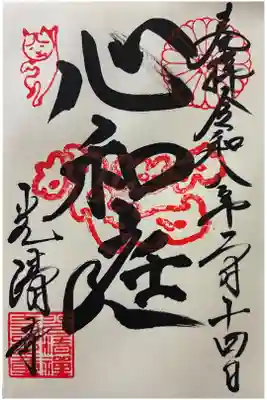 奉拝 令和八年二月十四日
心和庭
光清寺